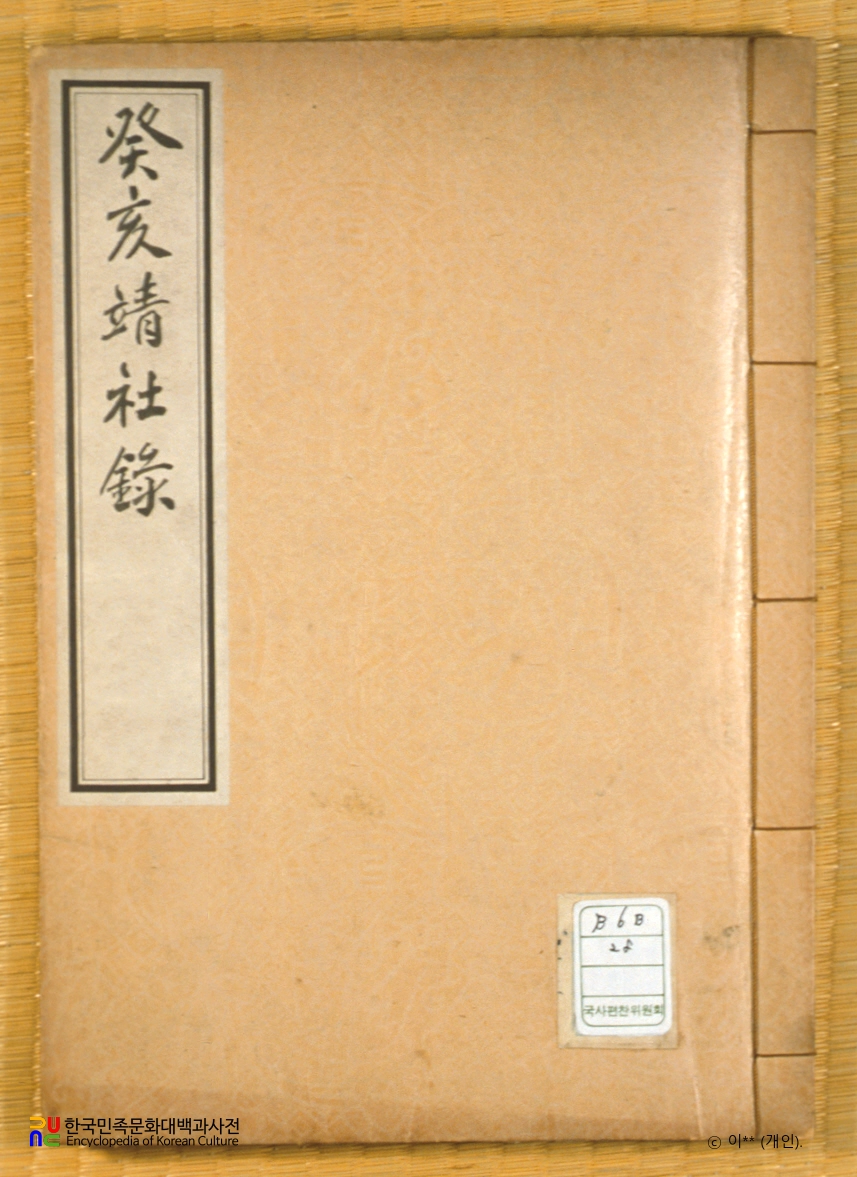 癸亥靖社錄
B6B
28
국사편찬위원회
한국민족문화대백과사전
Encyclopedia of Korean Culture
ⓒ 이** (개인).